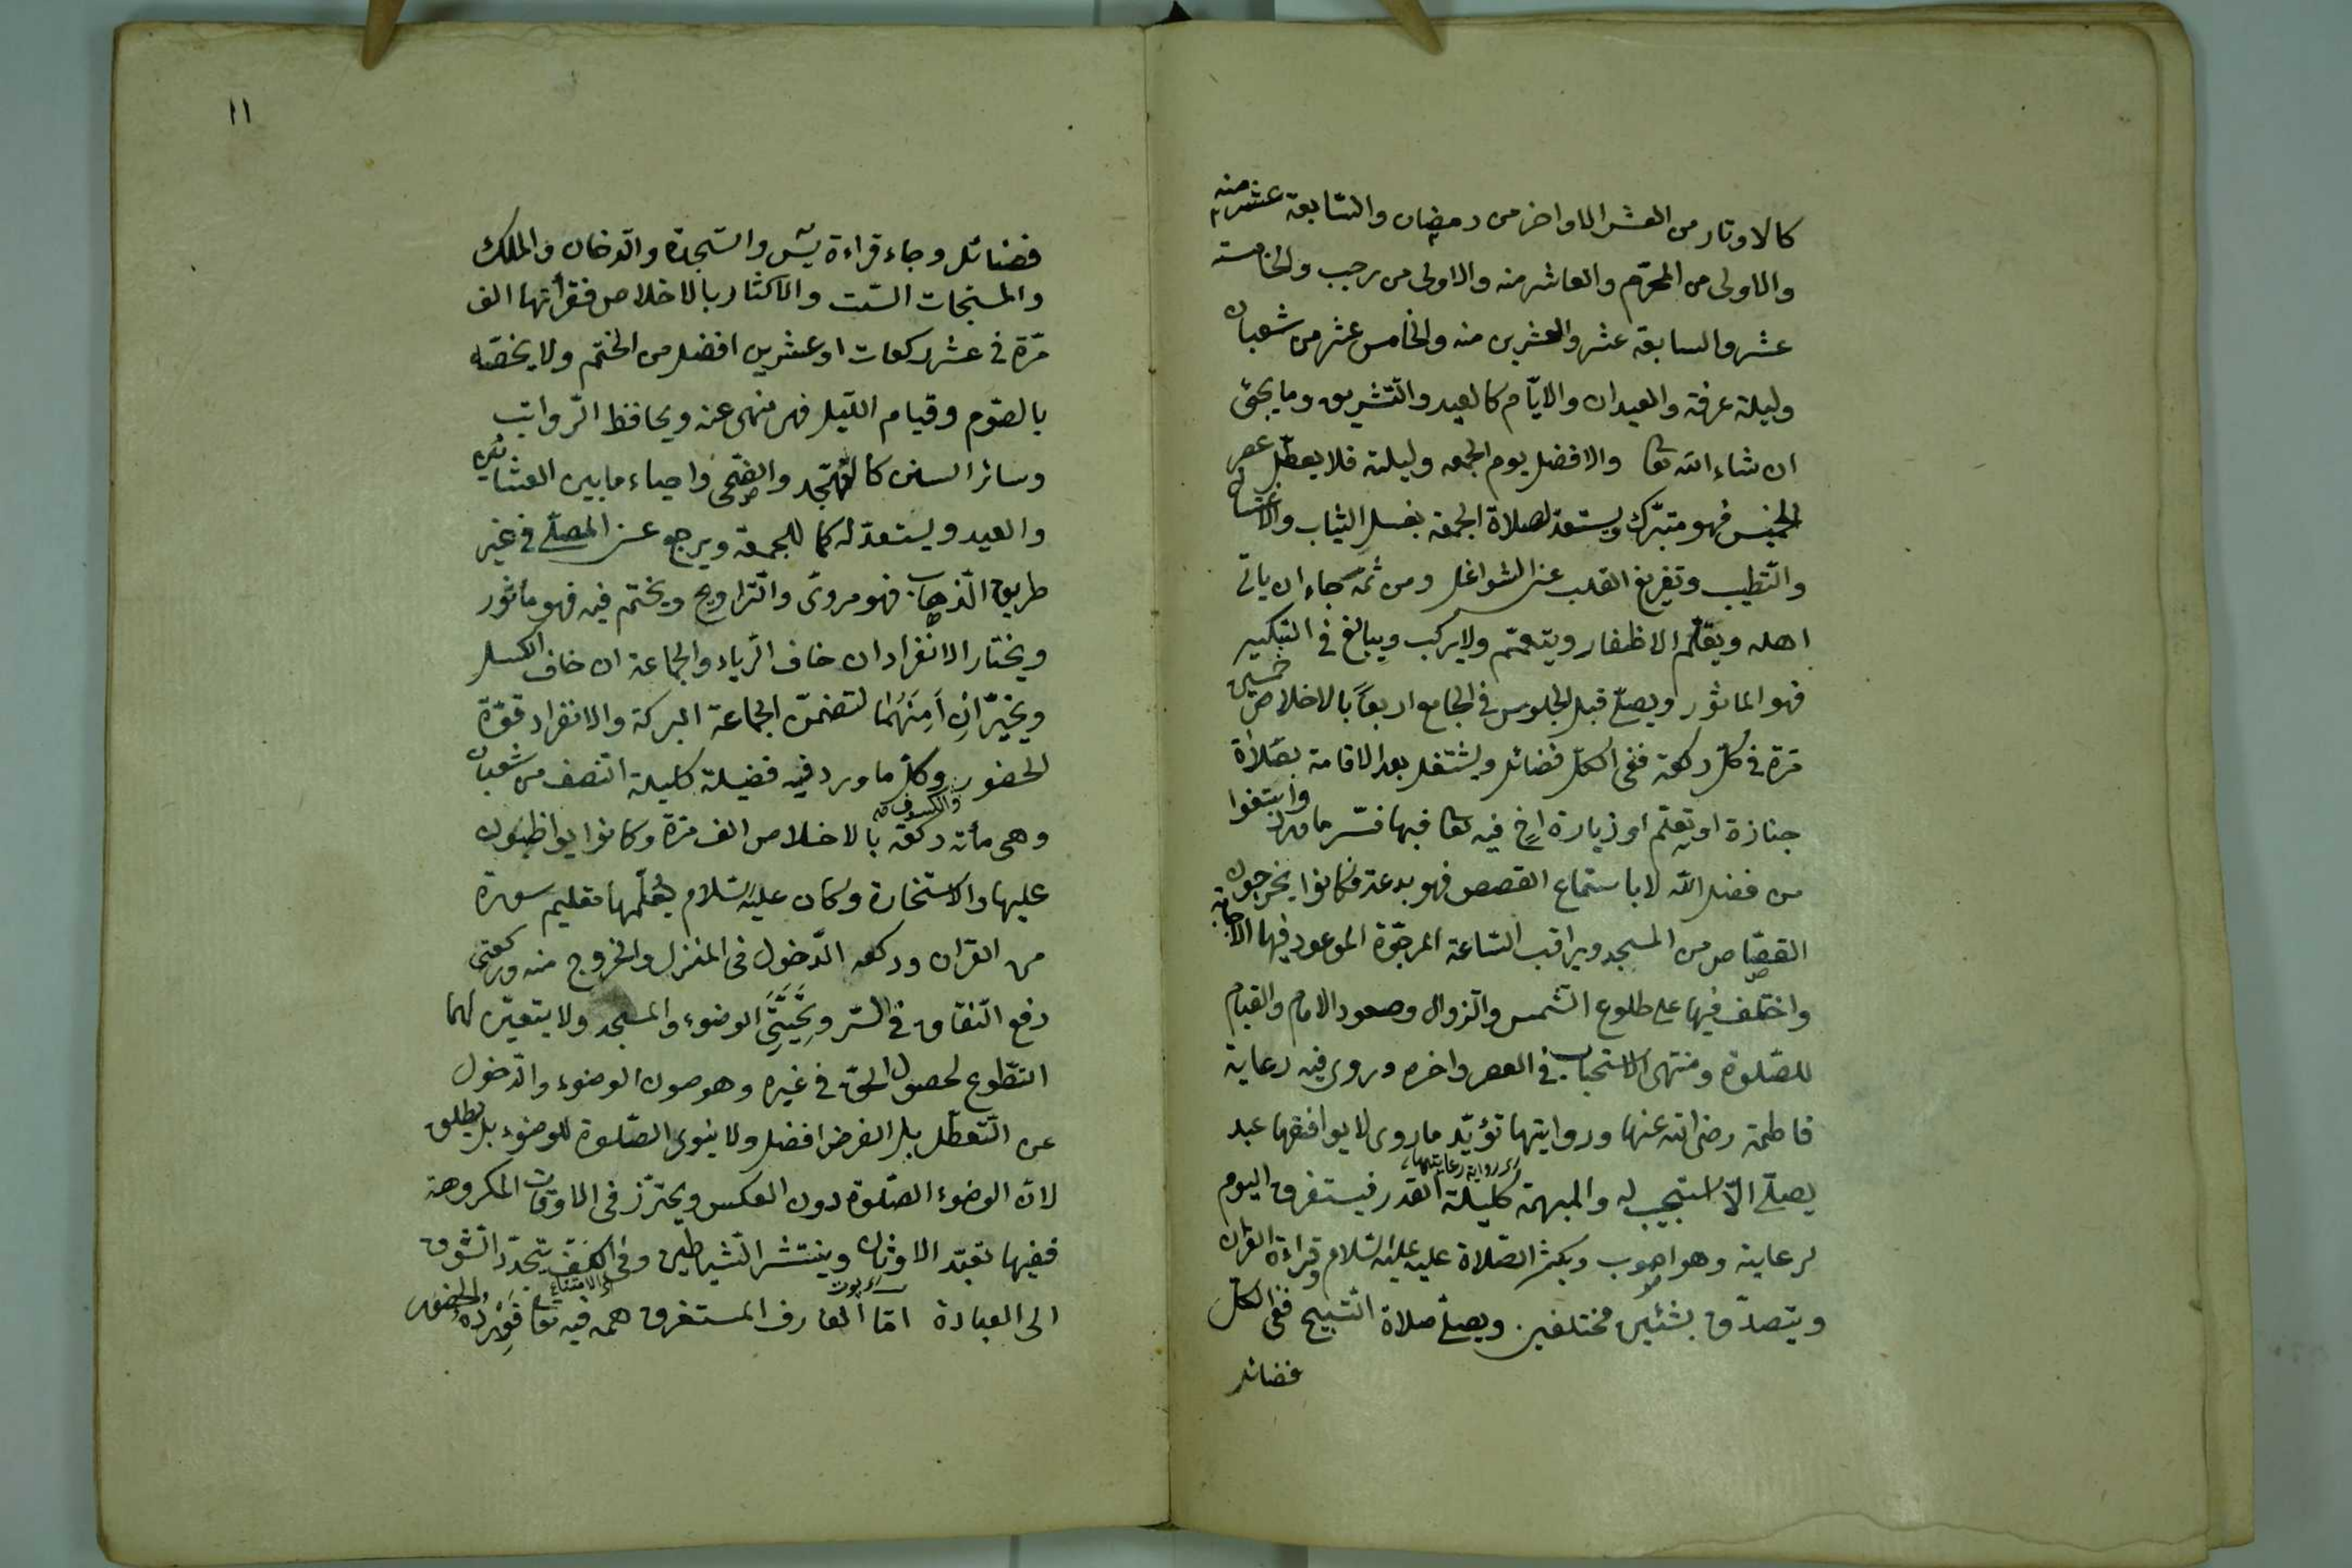 كالاوتار من العشر الاواخر من رمضان والسّابعة عشر منه
والاولى من المحرّم والعاشر منه والاولى من رجب والخامسة
عشر والسابعة عشر والعشرين منه والخامس عشر من شعبان
وليلة عرفة والعيدان والايّام كالعيد والتّشريق وما يجئ
ان شاء الله تعا والافضل يوم الجمعه وليلته فلا يعطّل عصر
الخميس فهو متبرّك ويستعدّ لصلاة الجمعة بغسل الثياب والاغتسال
والتّطيب وتفريغ القلب عن الشواغل ومن ثمّة جاء ان ياتى
اهله ويقلّم الاظفار ويتعمّم ولا يركب ويبالغ فى التبكير
فهو الماثور ويصلّى قبل الجلوس فى الجامع اربعًا بالاخلاص خمسين
مرّة فى كلّ ركعة ففى الكلّ فضائل ويشتغل بعد الاقامة بصلاة
جنازة او تعلّم او زيارة اخ فيه تعا فبها فسّر ما ورد وابتغوا
من فضل الله لا باستماع القصص فهو بدعة فكانوا يخرجون
القصّاص من المسجد ويراقب السّاعة المرجوّة الموعود فيها الاجابة
واختلف فيها على طلوع الشّمس والزوال وصعود الامام والقيام
للصّلوة ومنتهى الاستحباب فى العصر واخره وروى فيه رعاية
فاطمة رضى الله عنها وروايتها تؤيّد ما روى لا يوافقها عبد
اى رواية رعايتها
يصلّى الّا استجيب له والمبهمة كليلة القدر فيستغرق اليوم
لرعاية وهو اصوب ويكثر الصّلاة عليه عليه السّلام وقراءة القران
ويتصدّق بشئين مختلفين ويصلّى صلاة التّسبيح ففى الكلّ
فضائل
١١
فضائل وجاء قراءة يس والسّجدة والدّخان والملك
والمسبحات السّت والاكثار بالاخلاص فقرأتها الف
مرّة فى عشر ركعات او عشرين افضل من الختم ولا يخصّه
بالصّوم وقيام اللّيل فهو منهى عنه ويحافظ الرّواتب
وسائر السنن كالتّهجّد والضّحى واحياء ما بين العشائين
والعيد ويستعدّ له كما للجمعة ويرجع عن المصلّى فى غير
طريق الذّهاب فهو مروىّ والتّراويح ويختم فيه فهو ماثور
ويختار الانفراد ان خاف الرّياء والجماعة ان خاف الكسل
ويخيّر ان اَمِنَهُمَا لتضمّن الجماعة البركة والانفراد قوّة
الحضور وكلّ ما ورد فيه فضيلة كليلة النّصف من شعبان
والكسوف
وهى مأة ركعة بالاخلاص الف مرّة وكانوا يواظبون
عليها والاستخارة وكان عليه السّلام يُعلّمها تعليم سورة
من القران وركعه الدّخول فى المنزل والخروج منه وركعتى
دفع النّفاق فى السّر وتَحِيَّتَىِ الوضوء والمسجد ولا يتعيّن لهما
التطّوع لحصول الحقّ فى غيره وهو صون الوضوء والدّخول
عن التّعطّل بل الفرض افضل ولا ينوى الصّلوة للوضوء بل يطلق
لانّ الوضوء الصّلوة دون العكس ويحترّز فى الاوقات المكروهة
ففيها تعبّد الاوثان وينتشر الشّياطين وفى الكفّ يتجدّد الشّوق
الى العبادة امّا العارف المستغرق همه فيه تعا فَوِرْدُهُ الحضور